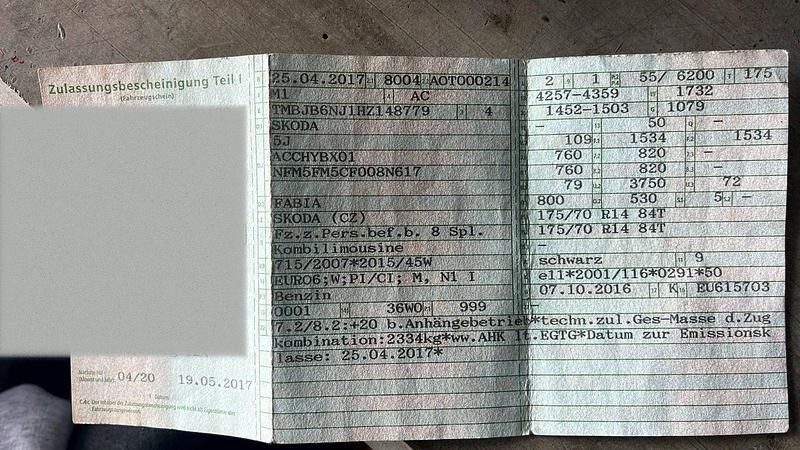 Zulassungsbescheinigung Teil I
(Fahrzeugschein)
04/20 19.05.2017
25.04.2017 8004 AOT000214
M1 AC
TMBJB6NJ1HZ148779 4
SKODA
5J
ACCHYBX01
NFM5FM5CF008N617
FABIA
SKODA (CZ)
Fz.z.Pers.bef.b. 8 Spl.
Kombilimousine
715/2007*2015/45W
EURO6;W;PI/CI; M, N1 I
Benzin
0001 36W0 999
2 1 55/ 6200 175
4257-4359 1732
1452-1503 1079
– 50 –
109 1534 1534
760 820 –
760 820 –
79 3750 72
800 530 5 –
175/70 R14 84T
175/70 R14 84T
–
schwarz 9
e11*2001/116*0291*50
07.10.2016 K EU615703
–
7.2/8.2:+20 b.Anhängebetrieb*techn.zul.Ges-Masse d.Zug
kombination:2334kg*ww.AHK lt.EGTG*Datum zur Emissionsk
lasse: 25.04.2017*